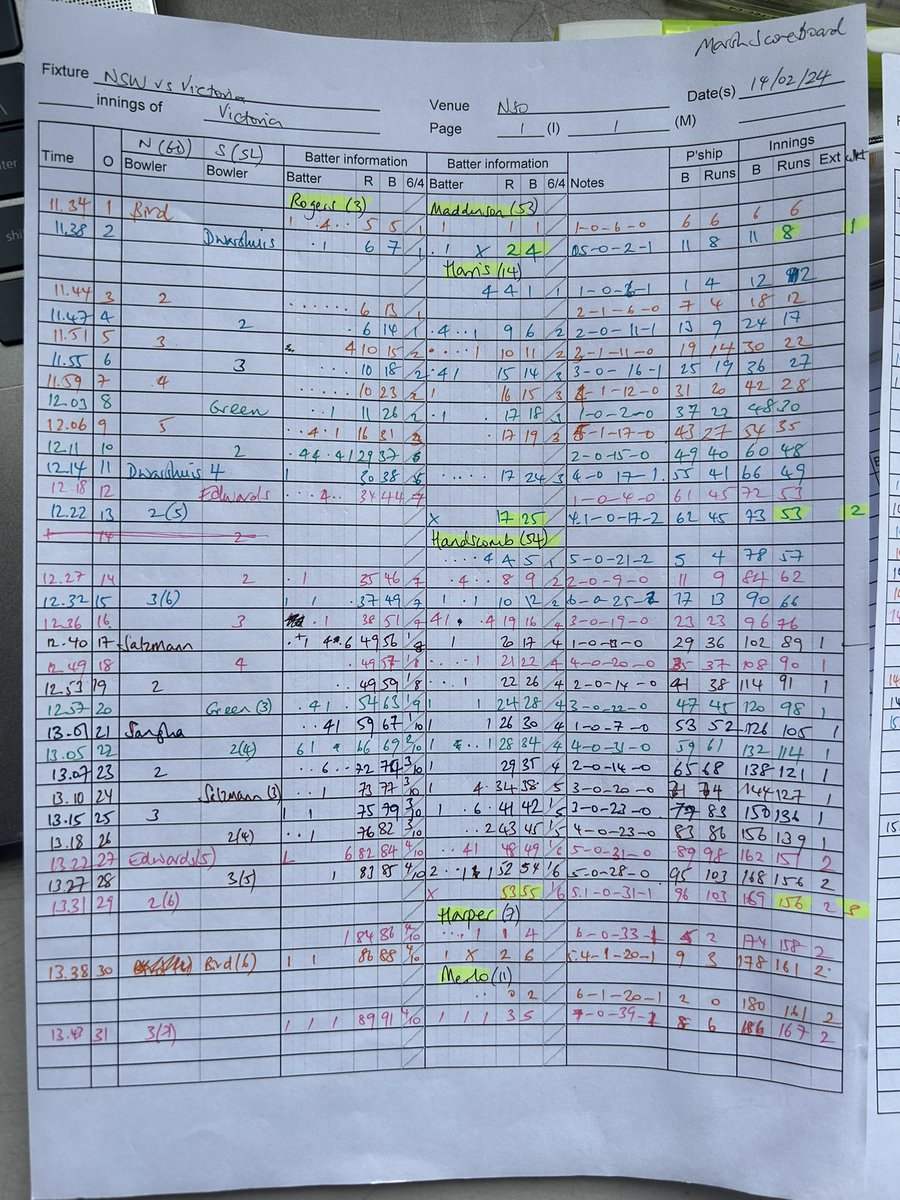 Marsh Scoreboard
Fixture NSW vs Victoria Venue NSO Date(s) 14/02/24
innings of Victoria Page 1 (I) 1 (M)
N (GD) S (SL) Batter information Batter information P'ship Innings
Time O Bowler Bowler Batter R B 6/4 Batter R B 6/4 Notes B Runs B Runs Ext wkt
Rogers (3) Maddinson (53)
11.34 1 Bird 1 . 4 . 5 5 1 1 1 1 1-0-6-0 6 6 6 6
11.38 2 Dwarshuis . 1 6 7 1 . 1 X 2 4 0.5-0-2-1 11 8 11 8 1
Harris (14)
4 4 1 1 1-0-6-1 1 4 12 12
11.44 3 2 . . . . . . 6 13 1 2-1-6-0 7 4 18 12
11.47 4 2 . 6 14 1 . 4 . . 1 9 6 2 2-0-11-1 13 9 24 17
11.51 5 3 4 10 15 2 . . . . 1 10 11 2 3-1-11-0 19 14 30 22
11.55 6 3 . . . 10 18 2 . 4 1 15 14 3 3-0-16-1 25 19 36 27
11.59 7 4 . . . . . 10 23 2 1 16 15 3 4-1-12-0 31 20 42 28
12.03 8 Green . . 1 11 26 2 . . 1 17 18 3 1-0-2-0 37 22 48 30
12.06 9 5 . . 4 . 1 16 31 3 . 17 19 3 5-1-17-0 43 27 54 35
12.11 10 2 . 4 4 . 4 1 29 37 6 2-0-15-0 49 40 60 48
12.14 11 Dwarshuis 4 1 30 38 6 . . . . . 17 24 3 4-0-17-1 55 41 66 49
12.18 12 Edwards . . . 4 . . 34 44 7 1-0-4-0 61 45 72 53
12.22 13 2(5) X 17 25 4.1-0-17-2 62 45 73 53 2
14 2 Handscomb (54)
. . . . 4 4 5 1 5-0-21-2 5 4 78 57
12.27 14 2 . 1 35 46 7 . 4 . . 8 9 2 2-0-9-0 11 9 84 62
12.32 15 3(6) 1 1 . 37 49 7 1 . 1 10 12 2 6-0-25-2 17 13 90 66
12.36 16 3 . 1 38 51 7 4 1 . 4 19 16 4 3-0-19-0 23 23 96 76
12.40 17 Salzmann 49 56 1/8 1 20 17 4 1-0-13-0 29 36 102 89 1
12.49 18 4 . 49 57 1/8 . . . . 1 21 22 4 4-0-20-0 35 37 108 90 1
12.53 19 2 . . 49 59 1/8 . . . 1 22 26 4 2-0-14-0 41 38 114 91 1
12.57 20 Green (3) . 4 1 . 54 63 1/9 1 1 24 28 4 3-0-22-0 47 45 120 98 1
13.01 21 Sangha . . 4 1 59 67 1/10 1 1 26 30 4 1-0-7-0 53 52 126 105 1
13.05 22 2(4) 6 1 66 69 2/10 1 . . 1 28 34 4 4-0-31-0 59 61 132 114 1
13.07 23 2 . . 6 . . 72 74 3/10 1 29 35 4 2-0-14-0 65 68 138 121 1
13.10 24 Salzmann (3) . . 1 73 77 3/10 . 4 34 38 5 3-0-20-0 71 74 144 127 1
13.15 25 3 1 1 75 79 3/10 1 . 6 . 41 42 1/5 3-0-23-0 77 83 150 136 1
13.18 26 2(4) . . 1 76 82 3/10 . . 2 43 45 1/5 4-0-23-0 83 86 156 139 1
13.22 27 Edwards (5) L 6 82 84 4/10 . . 4 1 48 49 1/6 5-0-31-0 89 98 162 151 2
13.27 28 3(5) 1 83 85 4/10 2 . . 1 1 52 54 1/6 5-0-28-0 95 103 168 156 2
13.31 29 2(6) X 53 55 1/6 5.1-0-31-1 96 103 169 156 2 3
Harper (7)
1 84 86 4/10 . . . 1 1 4 6-0-33-1 5 2 174 158 2
13.38 30 Bird (6) 1 1 86 88 4/10 1 X 2 6 5.4-1-20-1 9 5 178 161 2
Merlo (11)
. . 0 2 6-1-20-1 2 0 180 161 2
13.43 31 3(7) 1 1 1 89 91 4/10 1 1 1 3 5 7-0-39-1 8 6 186 167 2